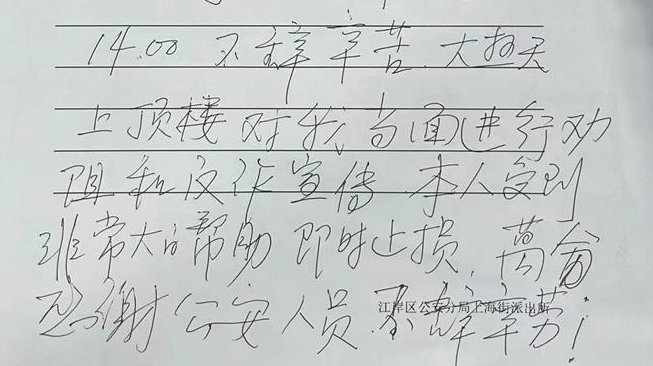 14.00 不辞辛苦.大热天
上顶楼对我当面进行劝
阻和反诈宣传.本人受到
非常大的帮助 即时止损,萬分
感谢公安人员不辞辛劳!
江岸区公安分局上海街派出所